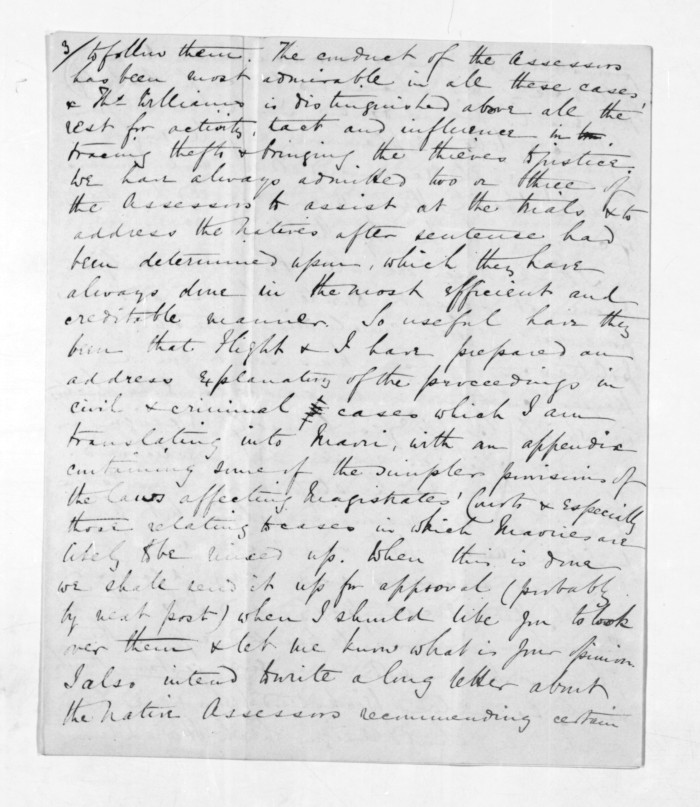 3/ to follow them. The conduct of the Assessors
has been most admirable in all these cases
& Thos Williams is distinguished above all the
rest for activity, tact and influence in
tracing thefts & bringing the thieves to justice.
We have always admitted two or three of
the Assessors to assist at the trials, & to
address the Natives after sentence had
been determined upon, which they have
always done in the most efficient and
creditable manner. So useful have they
been that Flight & I have prepared an
address explanatory of the proceedings in
civil & criminal cases which I am
translating into Maori, with an appendix
containing some of the simpler provisions of
the laws affecting Magistrates' Courts & especially
those relating to cases in which Maories are
likely to be mixed up. When this is done
we shall send it up for approval (probably
by next post) when I should like you to look
over them & let me know what is your opinion
I also intend to write a long letter about
the Native Assessors recommending certain